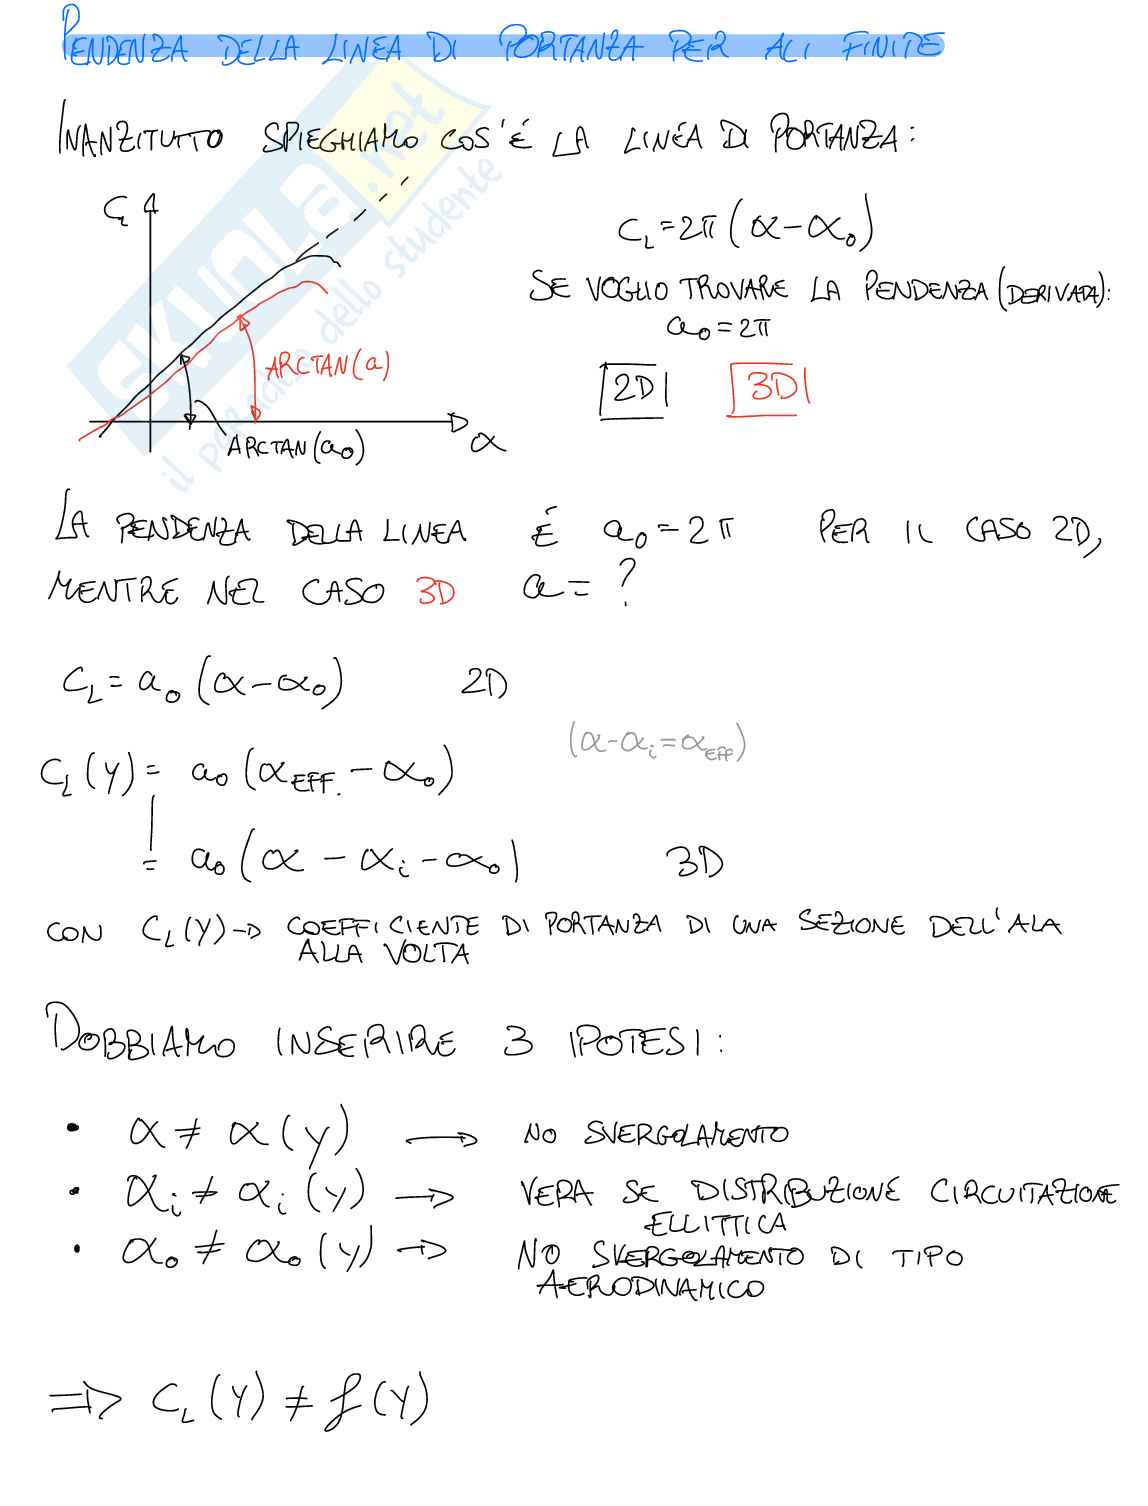 PENDENZA DELLA LINEA DI PORTANZA PER ALI FINITE
INANZITUTTO SPIEGHIAMO COS'É LA LINEA DI PORTANZA:
C_L
C_L = 2π (α - α₀)
SE VOGLIO TROVARE LA PENDENZA (DERIVATA):
a₀ = 2π
2D 3D
ARCTAN(a)
ARCTAN(a₀)
α
SKUOLA.net
il paradiso dello studente
LA PENDENZA DELLA LINEA É a₀ = 2π PER IL CASO 2D,
MENTRE NEL CASO 3D a = ?
C_L = a₀ (α - α₀) 2D
(α - α_i = α_EFF)
C_L (Y) = a₀ (α_EFF. - α₀)
= a₀ (α - α_i - α₀) 3D
CON C_L (Y) → COEFFICIENTE DI PORTANZA DI UNA SEZIONE DELL'ALA
ALLA VOLTA
DOBBIAMO INSERIRE 3 IPOTESI:
• α ≠ α (y) → NO SVERGOLAMENTO
• α_i ≠ α_i (y) → VERA SE DISTRIBUZIONE CIRCUITAZIONE
ELLITTICA
• α₀ ≠ α₀ (y) → NO SVERGOLAMENTO DI TIPO
AERODINAMICO
⇒ C_L (Y) ≠ f (Y)